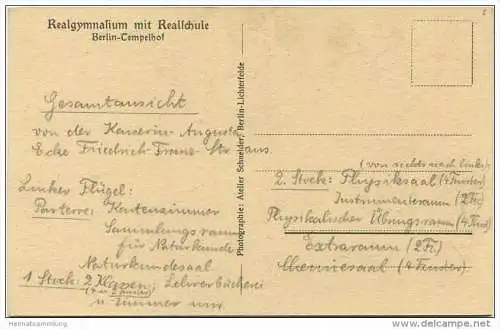 Realgymnasium mit Realschule
Berlin-Tempelhof
Gesamtansicht
von der Kaiserin-Augusta
Ecke Friedrich-Franz-Str aus.
Linker Flügel:
Parterre: Kartenzimmer
Sammlungsraum
für Naturkunde
Naturkundesaal
1 Stock: 2 Klassen; Lehrerbücherei
(4 u 2 Fenster)
u. Zimmer
Photographie: Atelier Schneider, Berlin-Lichterfelde
(von rechts nach links):
2. Stock: Physiksaal (4 Fenster)
Instrumentenraum (2 Fe)
Physikalischer Übungsraum (4 Fenst)
Extraraum (2 Fe)
Chemiesaal (4 Fenster)
Heimatsammlung